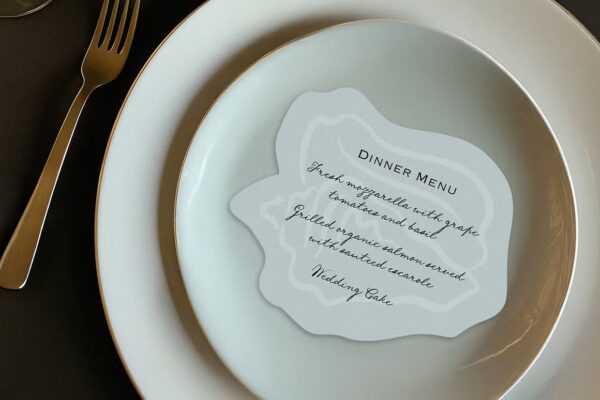 Dinner Menu
Fresh mozzarella with grape
tomatoes and basil
Grilled organic salmon served
with sauteed escarole
Wedding Cake